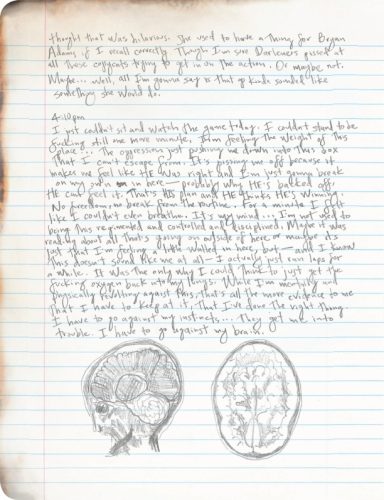 thought that was hilarious. She used to have a thing for Bryan
Adams if I recall correctly. Though I'm sure Darleners pissed at
all these copycats trying to get in on the action. Or maybe not.
Maybe... Well, all I'm gonna say is that of kinda sounded like
something she would do.
4:10pm
I just couldn't sit and watch the game today. I couldn't stand to be
fucking still one more minute, I'm feeling the weight of this
place... The oppression just pushing me down into this box
that I can't escape from. It's pissing me off because it
makes me feel like HE was right and I'm just gonna break
on my own in here — probably why HE's backed off,
HE can feel it. That's HIS plan and HE thinks HE's winning.
No freedom, no break from the routine. For a minute I felt
like I couldn't even breathe. It's my mind... I'm not used to
being this regimented and controlled and disciplined. Maybe it was
reading about all that's going on outside of here or maybe it's
just that I'm feeling a little walled in here but — and I know
this doesn't sound like me at all — I actually just ran laps for
a while. It was the only way I could think to just get the
fucking oxygen back into my lungs. While I'm mentally and
physically revolting against this, that's all the more evidence to me
that I have to keep at it, that I've done the right thing.
I have to go against my instincts... They get me into
trouble. I have to go against my brain.